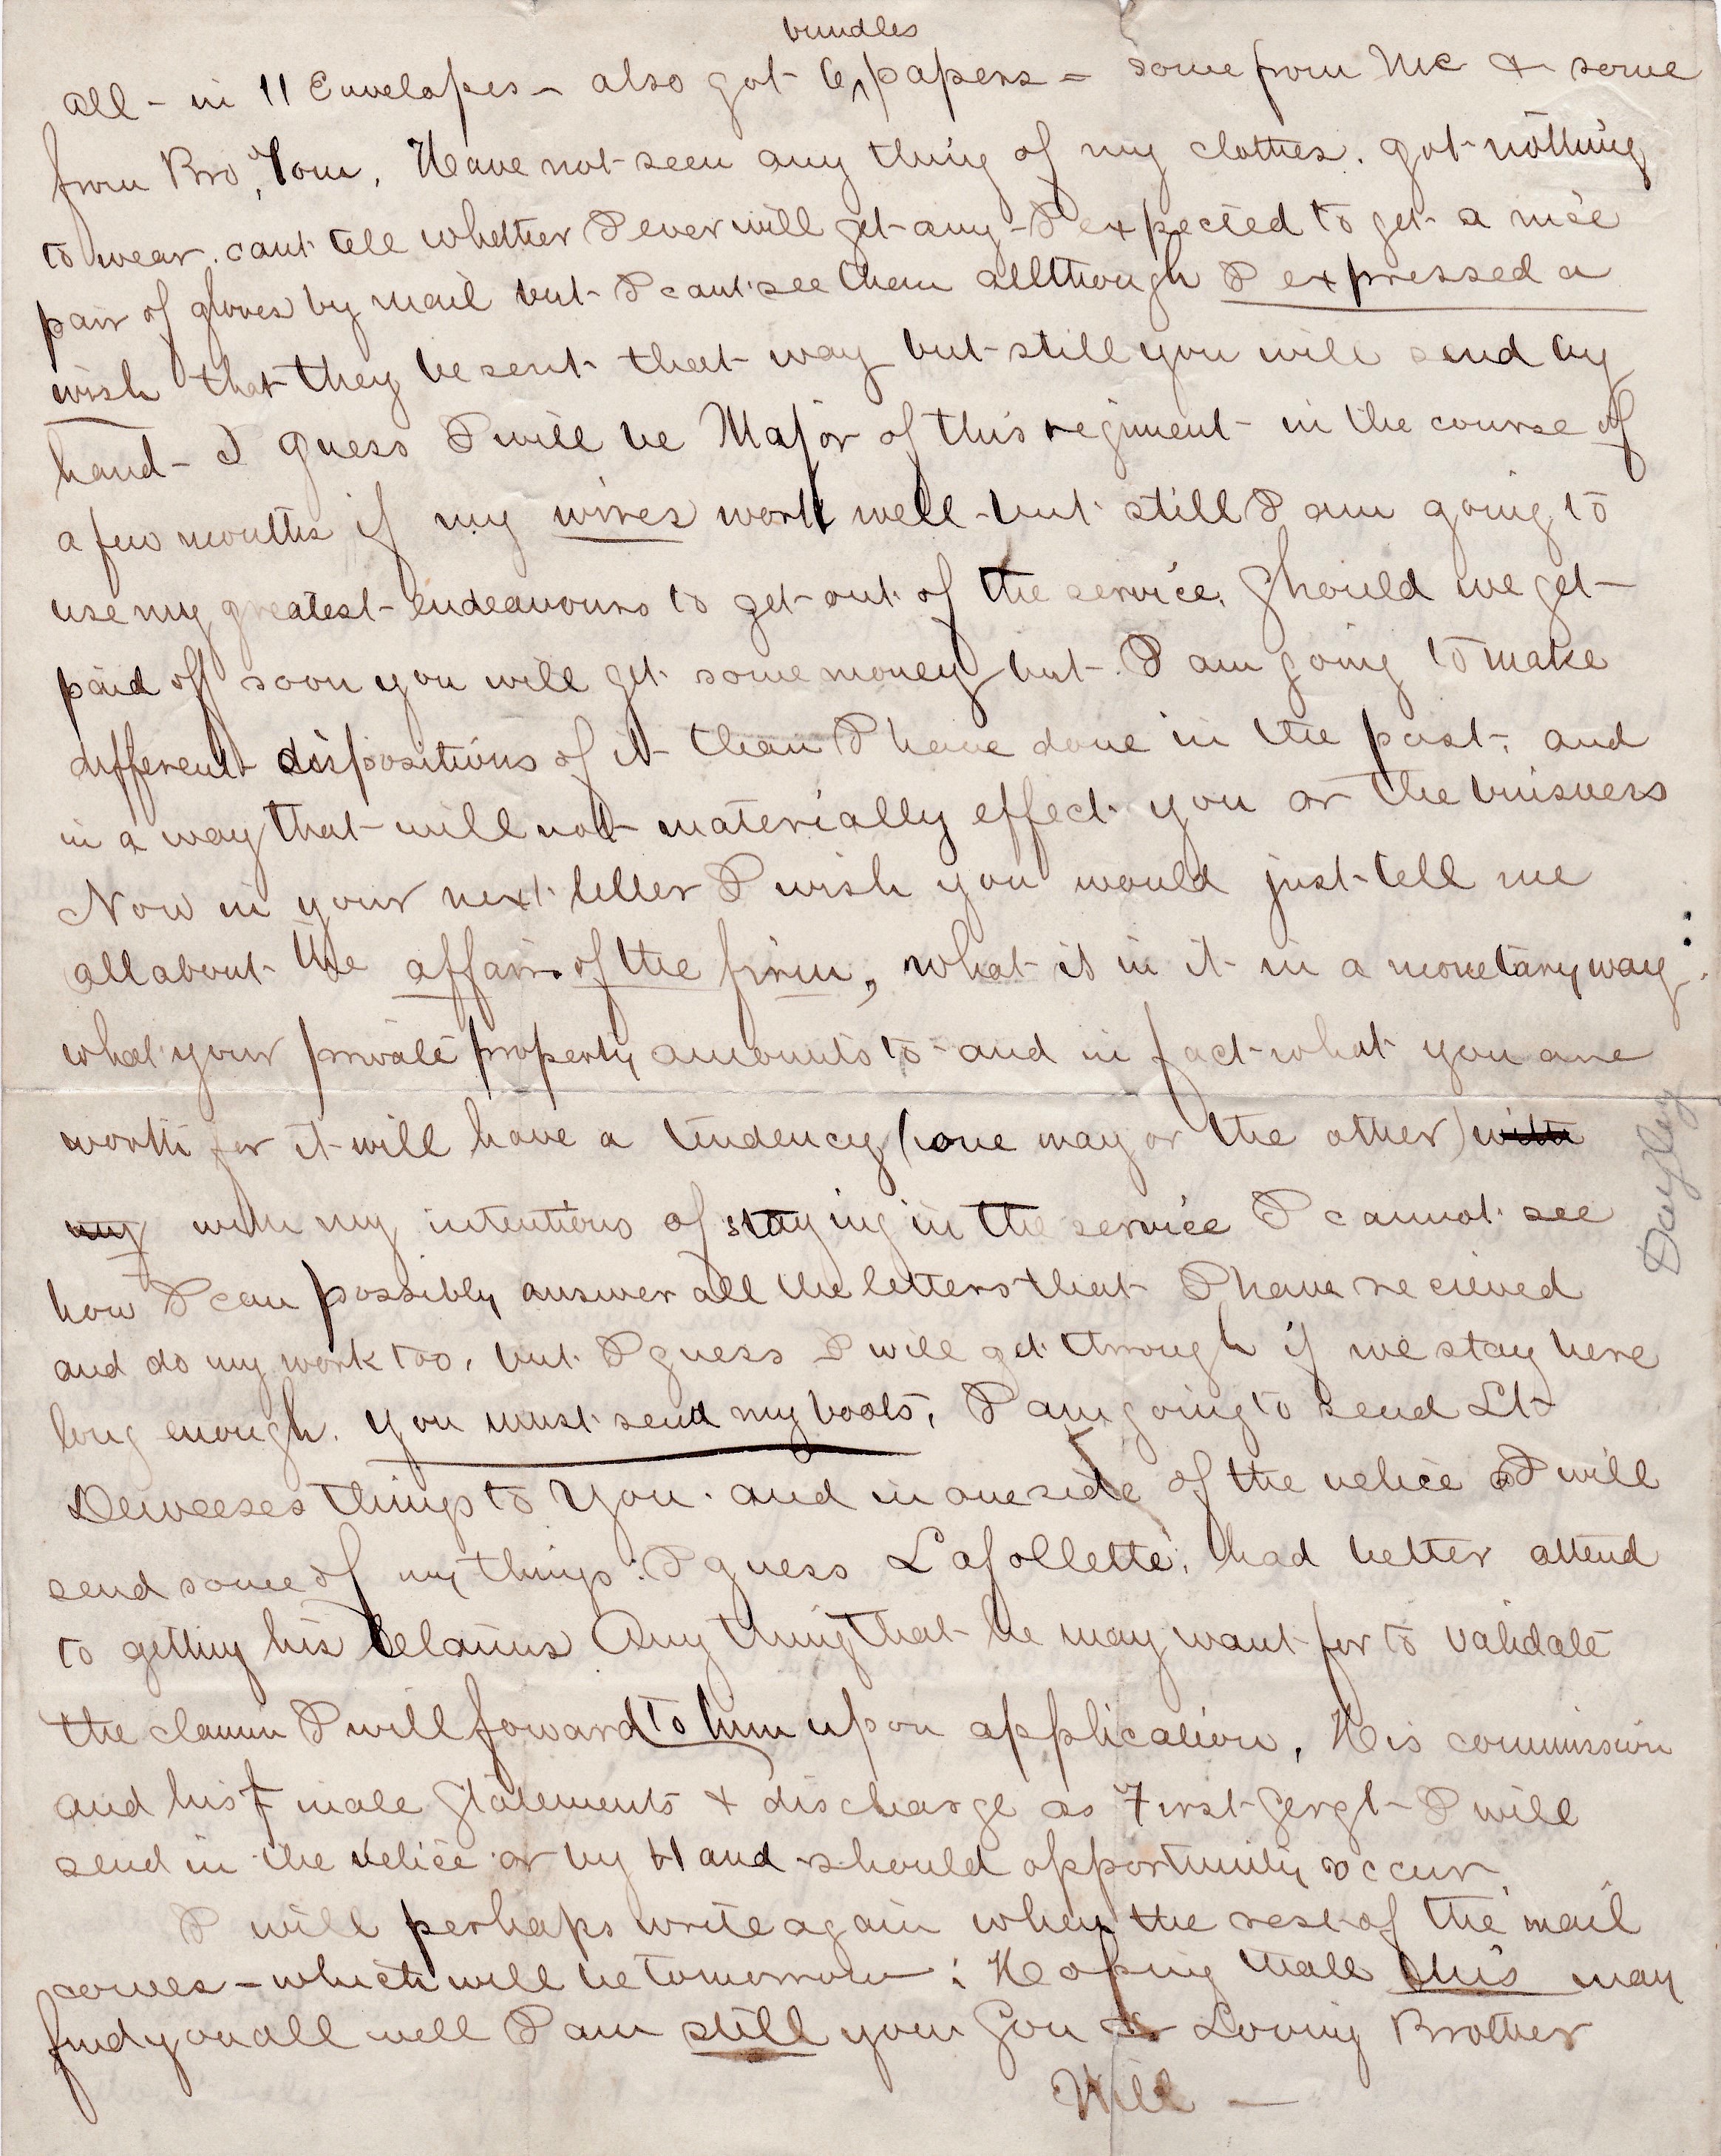 bundles
all - in 11 Envelopes - also got 6 ^ papers - some from Mc & some
from Bro, Tom, Have not seen any thing of my clothes. got nothing
to wear. cant tell whether I ever will get any - I expected to get a nice
pair of gloves by mail but I cant see them allthough I expressed a
wish that they be sent that way but still you will send by
hand - I guess I will be Major of this regiment in the course of
a few months if my wires work well - but still I am going to
use my greatest endeavours to get out of the service. Should we get
paid off soon you will get some money but I am going to make
different dispositions of it than I have done in the past, and
in a way that will not materially effect you or the buisness
Now in your next letter I wish you would just tell me
all about the affairs of the firm, what is in it in a monetary way:
what your private property amounts to - and in fact what you are
worth for it will have a tendency (one way or the other) with
my with my intentions of staying in the service I cannot see
how I can possibly answer all the letters that I have recieved
and do my work too, but I guess I will get through if we stay here
long enough. you must send my boots, I am going to send Lt
Deweeses things to you. and in one side of the velice I will
send some of my things. I guess Lafollette, had better attend
to getting his claims Any thing that he may want for to validate
the claim I will foward to him upon application, His commission
and his finale Statements & discharge as First Sergt I will
send in the velice or by Hand should opportunity occur.
I will perhaps write again when the rest of the mail
comes - which will be tomorrow: Hoping thatt this may
find you all well I am still your Son & Loving Brother
Will -
Dayley